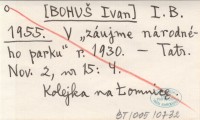 [BOHUŠ Ivan] I.B.
1955. V „záujme národné-
ho parku" r. 1930. — Tatr.
Nov. 2, nr 15: 4.
Kolejka na Łomnicę.